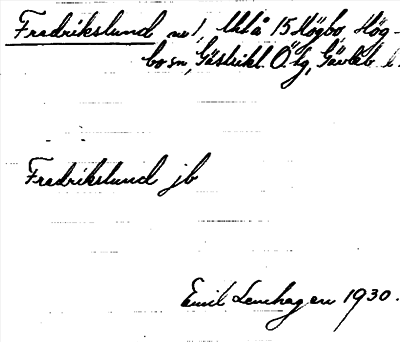 Fredrikslund nr 1, Uhlå 15 Högbo, Hög-
bo sn, Gästrikl. Ö. tg, Gävleb. l.
Fredrikslund jb
Emil Lenhagen 1930.